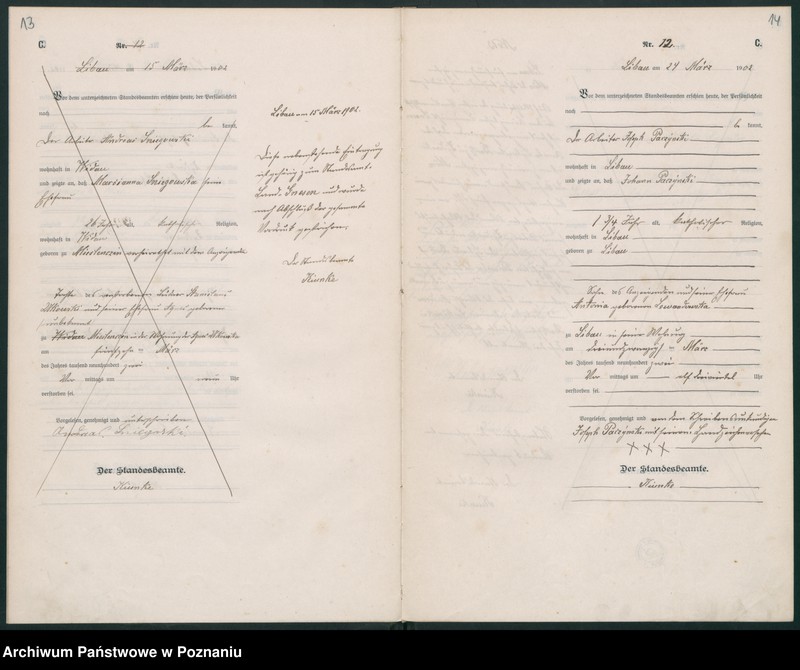 13
C.
Nr. 12
Libau am 15 März 1902
Vor dem unterzeichneten Standesbeamten erschien heute, der Persönlichkeit
nach
be kannt,
Der Arbeiter Andreas
wohnhaft in Widau
und zeigte an, daß Marianna seine
Ehefrau
26 Jahre alt, katholischer Religion,
wohnhaft in Widau
geboren zu verheirathet mit dem Anzeigenden
Tochter des verstorbenen
und seiner Ehefrau geborenen
unbekannt
zu in der Wohnung
am fünfzehn ten März
des Jahres tausend neunhundert zwei
Vor mittags um neun Uhr
verstorben sei.
Vorgelesen, genehmigt und unterschrieben
Der Standesbeamte.
Libau am 15 März 1902.
Diese nebenstehende Eintragung
gehörig zum Standesamt
Land Gnesen und wurde
nach Abschluß der gesammte
Vordruck gestrichen.
Der Standesbeamte
14
Nr. 12. C.
Libau am 24 März 1902
Vor dem unterzeichneten Standesbeamten erschien heute, der Persönlichkeit
nach
be kannt,
Der Arbeiter Joseph Paczynski
wohnhaft in Libau
und zeigte an, daß Johann Paczynski
1 3/4 Jahr alt, katholischer Religion,
wohnhaft in Libau
geboren zu Libau
Sohn des Anzeigenden und seiner Ehefrau
Antonia geborenen Lewandowska
zu Libau in seiner Wohnung
am dreiundzwanzigst ten März
des Jahres tausend neunhundert zwei
Vor mittags um elf dreiviertel Uhr
verstorben sei.
Vorgelesen, genehmigt und von dem Schreibensunkundigen
Joseph Paczynski mit seinem Handzeichen versehen
+ + +
Der Standesbeamte.
Archiwum Państwowe w Poznaniu